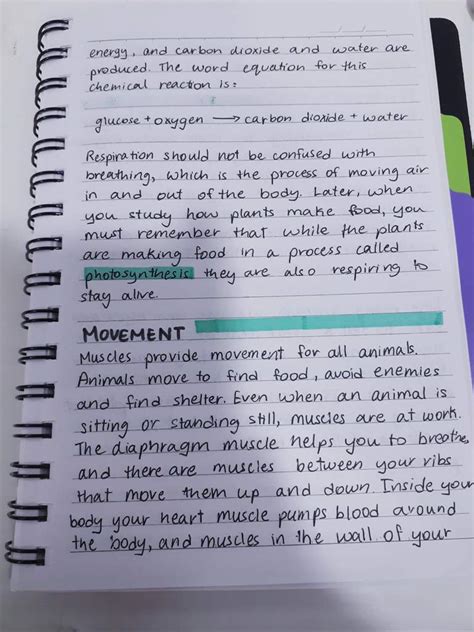 energy, and carbon dioxide and water are
produced. The word equation for this
chemical reaction is:
glucose + oxygen ⟶ carbon dioxide + water
Respiration should not be confused with
breathing, which is the process of moving air
in and out of the body. Later, when
you study how plants make food, you
must remember that while the plants
are making food in a process called
photosynthesis they are also respiring to
stay alive.
MOVEMENT
Muscles provide movement for all animals.
Animals move to find food, avoid enemies
and find shelter. Even when an animal is
sitting or standing still, muscles are at work.
The diaphragm muscle helps you to breathe,
and there are muscles between your ribs
that move them up and down. Inside your
body your heart muscle pumps blood around
the body, and muscles in the wall of your